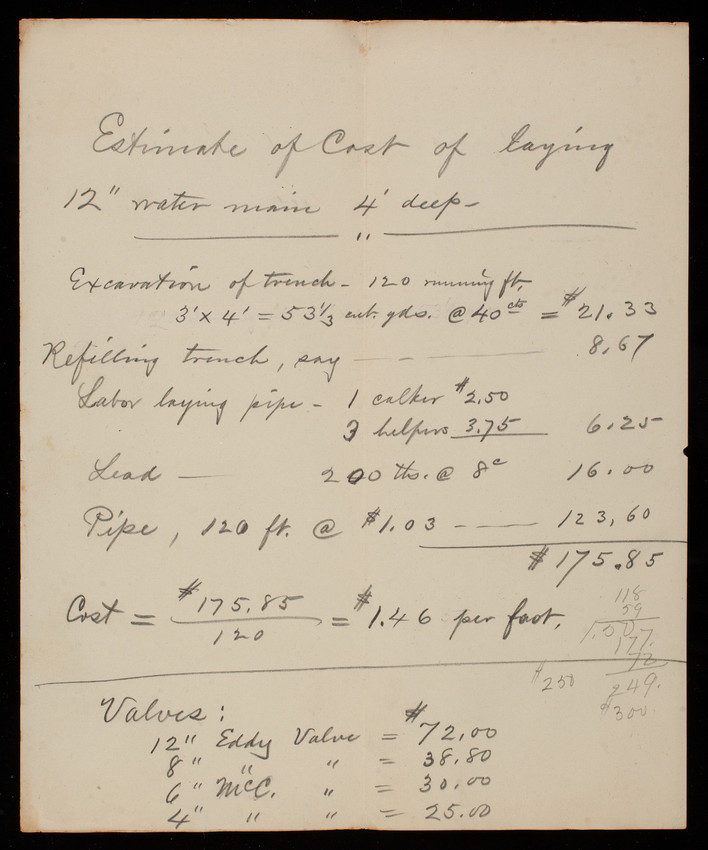 Estimate of Cost of laying
12" water main 4' deep -
"
Excavation of trench - 120 running ft.
3' x 4' = 53 1/3 cub. yds. @ 40 cts = $21.33
Refilling trench, say — — — 8.67
Labor laying pipe - 1 calker $2.50
3 helpers 3.75 6.25
Lead — 200 lbs. @ 8c 16.00
Pipe, 120 ft. @ $1.03 - — — 123,60
$175.85
Cost = $175.85 / 120 = $1.46 per foot.
118
59
1.50
177.
72
$250 249.
$300
Valves:
12" Eddy Valve = $72.00
8" " " = 38.80
6" McC. " = 30.00
4" " " = 25.00